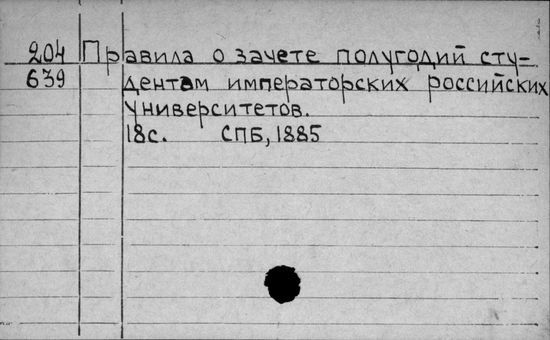 204 Правила о зачете полугодий сту-
639 дентам императорских российских
университетов.
18с. СПБ, 1885